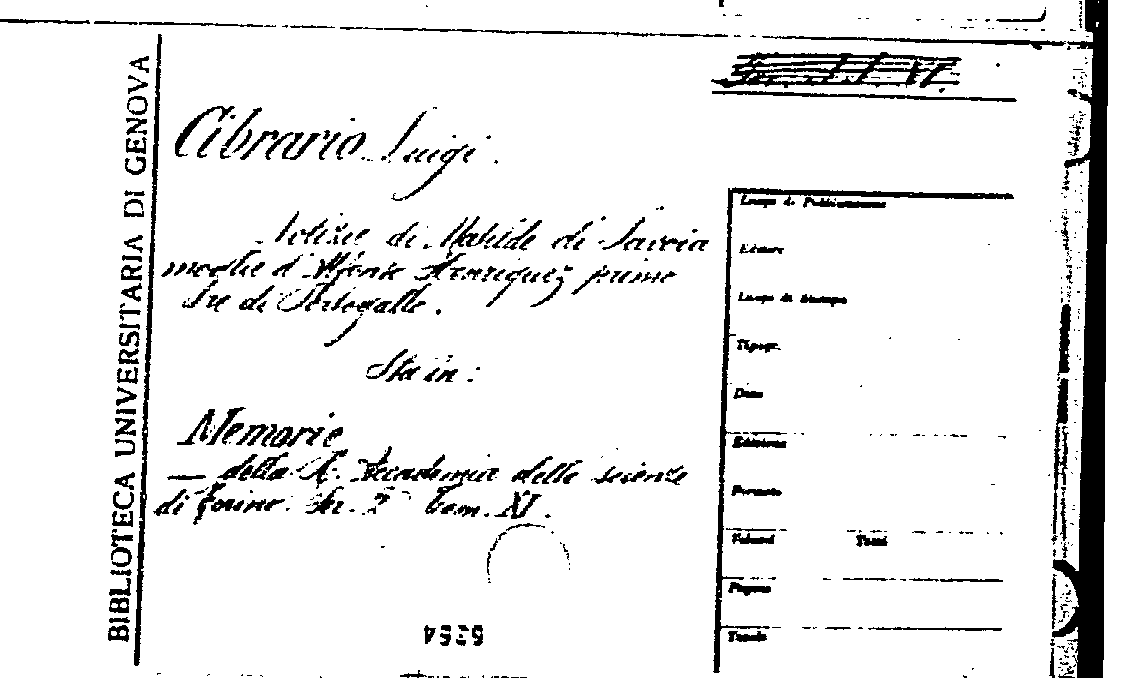 BIBLIOTECA UNIVERSITARIA DI GENOVA
Cibrario Luigi.
Notizie di Matilde di Savoia
moglie d'Alfonso Henriquez primo
Re di Portogallo.
Sta in:
Memorie
— della R. Accademia delle scienze
di Torino. Ser. 2ª tom. XI.
Luogo di Pubblicazione
Editore
Luogo di Stampa
Tipogr.
Data
Edizione
Formato
Volumi Tomi
Pagine
Tavole